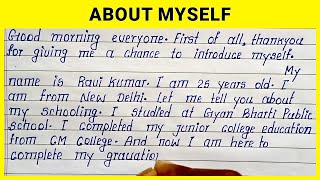 ABOUT MYSELF
Good morning everyone. First of all, thankyou
for giving me a chance to introduce myself.
My
name is Ravi Kumar. I am 25 years old. I
am from New Delhi. Let me tell you about
my schooling. I studied at Gyan Bharti Public
school. I completed my junior college education
from GM College. And now I am here to
complete my grauatio